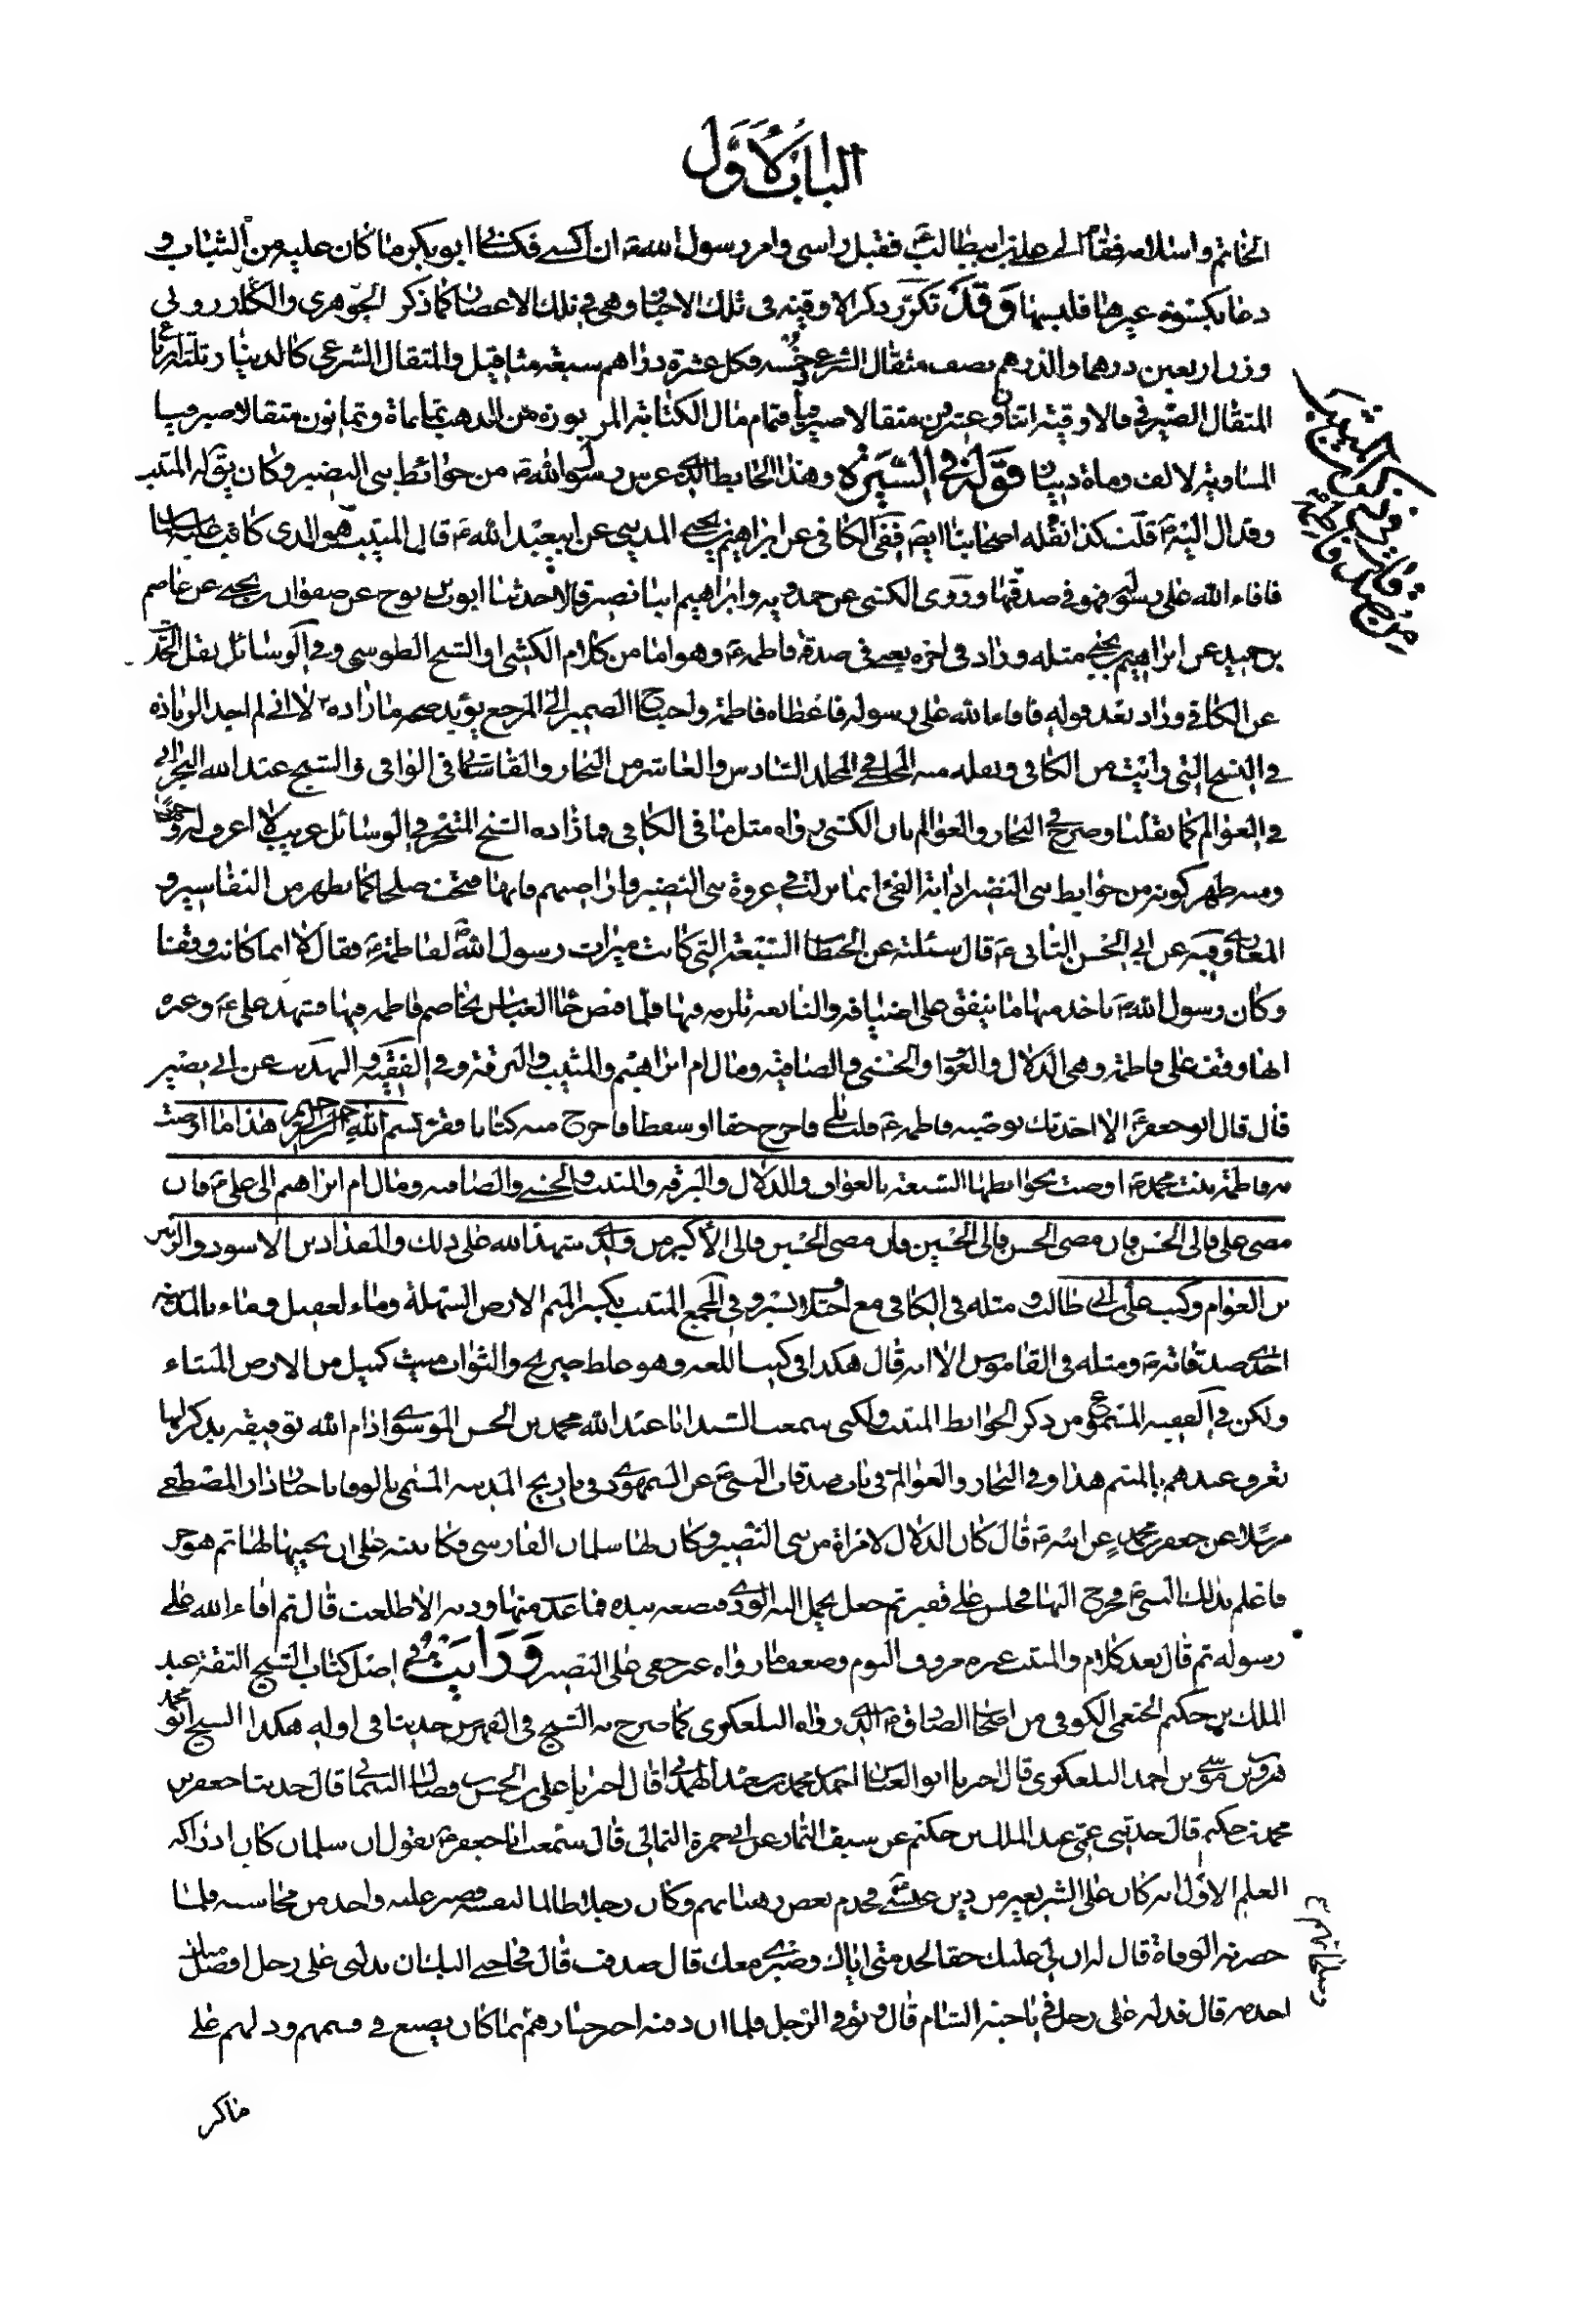 الباب الأول
الخاتم واسلامه فقام الى علي بن ابيطالب فقبل راسي وامر رسول الله ان اكسى فكساني ابو بكر ما كان عليه من الثياب و
دعا بكسوة غيرها فلبسها وَقَدْ تكرّر ذكر الاوقية في تلك الاخبار وهي في تلك الاعصار كما ذكر الجوهري والكازروني
وزن اربعين درهما والدرهم نصف مثقال الشرعي وخمسه فكل عشرة دراهم سبعة مثاقيل والمثقال الشرعي كالدينار ثلثة ارباع
المثقال الصيرفي فالاوقية اثنان وعشرون مثقالا صيرفيا فتمام مال الكتابة المزبورة من الذهب ثمانماة وثمانون مثقالا صيرفيا
المساوية لالف وماة دينار قوله في السيرة وهذا الحايط الذي غرس رسول الله من حوائط بني النضير وكان يقال له المثيب
وقد ال اليه قلت كذا نقله اصحابنا ايضا ففي الكافي عن ابراهيم بن يحيى المديني عن ابيعبد الله قال المثيب هو الذي كاتب عليه سلمان
فافاء الله على رسوله فهو في صدقتها وروى الكشي عن حمدويه وابراهيم ابنا نصير قالا حدثنا ايوب بن نوح عن صفوان بن يحيى عن عاصم
بن حميد عن ابراهيم بن يحيى مثله وزاد في اخره يعني في صدقة فاطمة وهو اما من كلام الكشي او الشيخ الطوسي وفي الوسائل نقل الخبر
عن الكافي وزاد بعد قوله فافاء الله على رسوله فاعطاه فاطمة واحتياج الضمير الى المرجع يؤيد صحة ما زاده الا اني لم اجد الزيادة
في النسخ التي رايت من الكافي ونقله منه المجلسي في المجلد السادس والعاشر من البحار والقاشاني في الوافي والشيخ عبد الله البحراني
في العوالم كما نقلنا وصرح في البحار والعوالم بان الكشي رواه مثل ما في الكافي فما زاده الشيخ المتبحر في الوسائل غريب لا اعرف له وجها
ومنه ظهر كونه من حوايط بني النضير اذ اية الفئ انما نزلت في غزوة بني النضير واراضيهم فانها فتحت صلحا كما يظهر من التفاسير و
المغازي وفيه عن ابي الحسن الثاني قال سئلته عن الحيطان السبعة التي كانت ميراث رسول الله لفاطمة فقال لا انما كانت وقفا
وكان رسول الله ياخذ منها ما ينفق على اضيافه والتابعة تلزمه فيها فلما قبض جاء العباس يخاصم فاطمة فيها فشهد علي وغيره
انها وقف على فاطمة وهي الدلال والعواف والحسنى والصافية ومال ام ابراهيم والمثيب والبرقة وفي الفقيه والتهذيب عن ابي بصير
قال قال ابو جعفر الا احدثك بوصية فاطمة قلت بلى فاخرج حقا او سفطا فاخرج منه كتابا فقرأ بسم الله الرحمن الرحيم هذا ما اوصت
به فاطمة بنت محمد اوصت بحوايطها السبعة بالعواف والدلال والبرقة والمثيب والحسنى والصافية ومال ام ابراهيم الى علي فان
مضى علي فالى الحسن فان مضى الحسن فالى الحسين فان مضى الحسين فالى الأكبر من ولدي شهد الله على ذلك والمقداد بن الاسود والزبير
بن العوام وكتب علي بن ابي طالب ومثله في الكافي مع اختلاف يسير وفي المجمع المثيب بكسر الميم الارض السهلة وماء لعقيل وماء بالمدينة
احدى صدقاته ومثله في القاموس الا انه قال هكذا في كتب اللغة وهو غلط صريح والثواب ميث كميل من الارض الميثاء
ولكن في الفقيه المسموع من ذكر الحوايط المثيب ولكني سمعت السيد ابا عبد الله محمد بن الحسن الموسوي ادام الله توفيقه يذكر انها
تعرف عندهم بالميثم هذا وفي البحار والعوالم في باب صدقات النبي عن السمهودي في تاريخ المدينة المسمى بالوفا باخبار دار المصطفى
مرسلا عن جعفر بن محمد عن ابيه قال كان الدلال لامراة من بني النضير وكان لها سلمان الفارسي فكاتبته على ان يحييها لها ثم هو حر
فاعلم بذلك النبي فخرج اليها فجلس على فقير ثم جعل يحمل اليه الودي فيضعه بيده فما عدت منها ودية الا طلعت قال ثم افاء الله على
رسوله ثم قال بعد كلام والمثيب غيره معروف اليوم وصعفطار رواه عن جعفر على النضير وَرَايْتُ في اصل كتاب الشيخ الثقة عبد
الملك بن حكيم الخثعمي الكوفي من اصحاب الصادق الذي رواه التلعكبري كما صرح به الشيخ في الفهرس حديثا في اوله هكذا الشيخ ابو محمد
هرون بن موسى بن احمد التلعكبري قال اخبرنا ابو العباس احمد بن محمد بن سعيد الهمداني قال اخبرنا علي بن الحسن بن فضال التيملي قال حدثنا جعفر بن
محمد بن حكيم قال حدثني عمي عبد الملك بن حكيم عن سيف التمار عن ابي حمزة الثمالي قال سمعت ابا جعفر يقول ان سلمان كان ادراكه
العلم الاول انه كان على الشريعة من دين عيسى فخدم بعض رهبانهم وكان رجلا ظالما لنفسه فصبر عليه واحد من محاسنه فلما
حضرته الوفاة قال له ان لي عليك حقا لخدمتي اياك وصبري معك قال صدقت قال فحاجتي اليك ان تدلني على رجل افضل مناصحه
اخدمه قال فدله على رجل في ناحية الشام قال وتوفي الرجل فلما ان دفنه اخرج بناءهم بما كان يصنع في قسمهم ودلهم على
ماكر